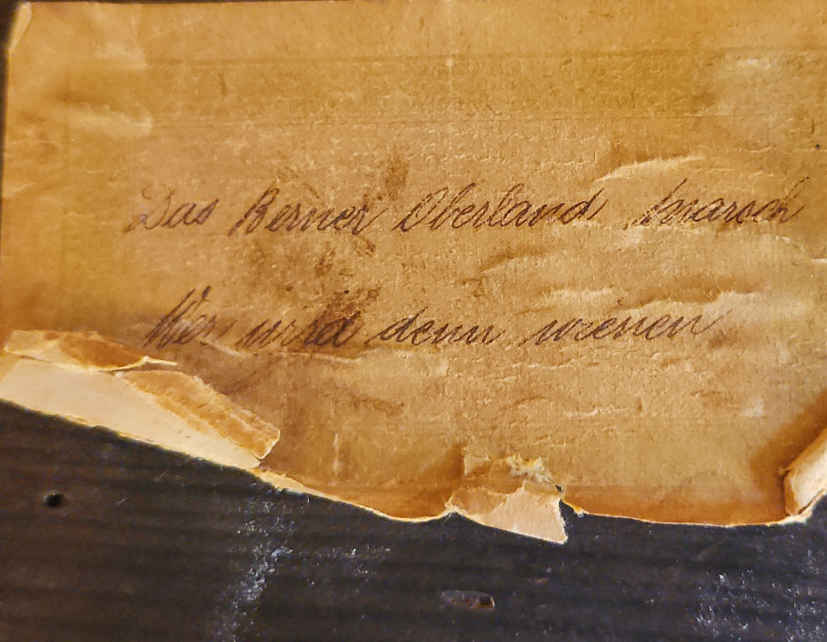 Das Berner Oberland Marsch
Wer wird denn weinen